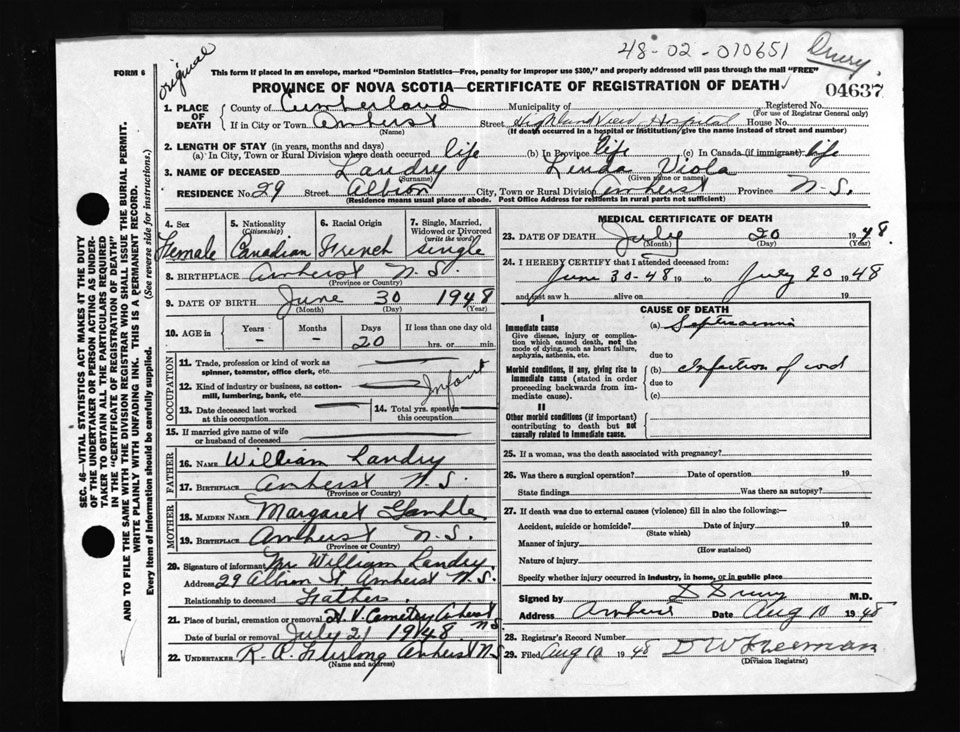 48-02-010651 Drury
FORM 6
original
This form if placed in an envelope, marked "Dominion Statistics—Free, penalty for improper use $300," and properly addressed will pass through the mail "FREE"
PROVINCE OF NOVA SCOTIA—CERTIFICATE OF REGISTRATION OF DEATH
04637
SEC. 46—VITAL STATISTICS ACT MAKES IT THE DUTY
OF THE UNDERTAKER OR PERSON ACTING AS UNDER-
TAKER TO OBTAIN ALL THE PARTICULARS REQUIRED
IN THE "CERTIFICATE OF REGISTRATION OF DEATH"
AND TO FILE THE SAME WITH THE DIVISION REGISTRAR WHO SHALL ISSUE THE BURIAL PERMIT.
WRITE PLAINLY WITH UNFADING INK. THIS IS A PERMANENT RECORD.
Every item of information should be carefully supplied. (See reverse side for instructions.)
1. PLACE OF DEATH
County of Cumberland Municipality of Registered No.
(For use of Registrar General only)
If in City or Town Amherst Street Highland View Hospital House No.
(Name) (If death occurred in a hospital or institution, give the name instead of street and number)
2. LENGTH OF STAY (in years, months and days)
(a) In City, Town or Rural Division where death occurred life (b) In Province life (c) In Canada (if immigrant) life
3. NAME OF DECEASED Landry Linda Viola
(Surname) (Given name or names)
RESIDENCE No. 29 Street Albion City, Town or Rural Division Amherst Province N.S.
(Residence means usual place of abode. Post Office Address for residents in rural parts not sufficient)
4. Sex 5. Nationality (Citizenship) 6. Racial Origin 7. Single, Married, Widowed or Divorced (write the word)
Female Canadian French single
8. BIRTHPLACE Amherst N.S.
(Province or Country)
9. DATE OF BIRTH June 30 1948
(Month) (Day) (Year)
10. AGE in Years Months Days If less than one day old
- - 20 hrs. or min.
OCCUPATION
11. Trade, profession or kind of work as
spinner, teamster, office clerk, etc.
12. Kind of industry or business, as cotton-
mill, lumbering, bank, etc.
Infant
13. Date deceased last worked
at this occupation
14. Total yrs. spent in
this occupation
15. If married give name of wife
or husband of deceased
FATHER
16. NAME William Landry
17. BIRTHPLACE Amherst N.S.
(Province or Country)
MOTHER
18. MAIDEN NAME Margaret Gamble
19. BIRTHPLACE Amherst N.S.
(Province or Country)
20. Signature of informant Mr William Landry
Address 29 Albion St. Amherst N.S.
Relationship to deceased Father
21. Place of burial, cremation or removal H.V. Cemetery Amherst N.S.
Date of burial or removal July 21 1948
22. UNDERTAKER R.A. Furlong Amherst N.S.
(Name and address)
MEDICAL CERTIFICATE OF DEATH
23. DATE OF DEATH July 20 1948.
(Month) (Day) (Year)
24. I HEREBY CERTIFY that I attended deceased from:
June 30-48 19 to July 20 1948
and last saw h alive on 19
CAUSE OF DEATH
I
Immediate cause
Give disease, injury or complication which caused death, not the mode of dying, such as heart failure, asphyxia, asthenia, etc.
(a) Septicaemia
due to
Morbid conditions, if any, giving rise to immediate cause (stated in order proceeding backwards from immediate cause).
(b) Infection of cord
due to
(c)
II
Other morbid conditions (if important) contributing to death but not causally related to immediate cause.
25. If a woman, was the death associated with pregnancy?
26. Was there a surgical operation? Date of operation 19
State findings Was there an autopsy?
27. If death was due to external causes (violence) fill in also the following:—
Accident, suicide or homicide? Date of injury 19
(State which)
Manner of injury
(How sustained)
Nature of injury
Specify whether injury occurred in industry, in home, or in public place
Signed by D Drury M.D.
Address Amherst Date Aug 10 1948
28. Registrar's Record Number
29. Filed Aug 10 1948 D W Freeman
(Division Registrar)